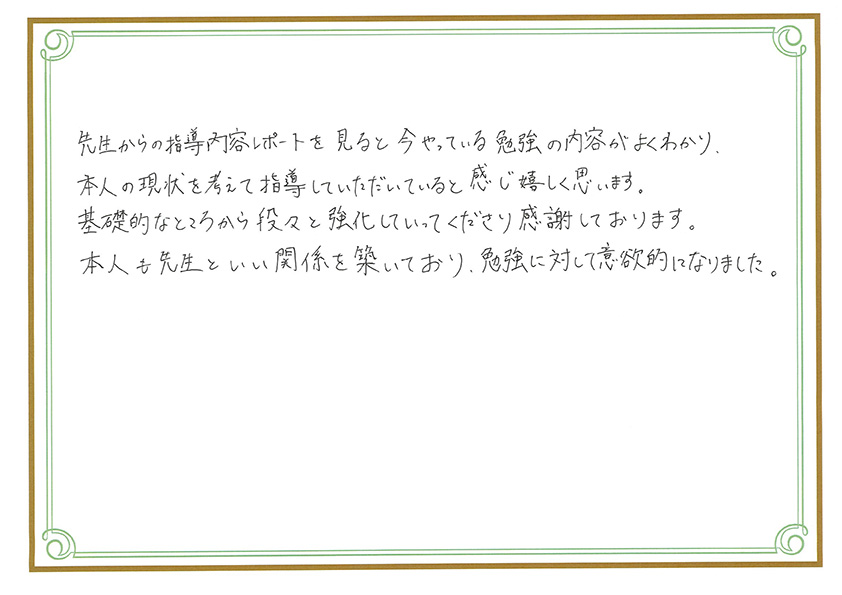 先生からの指導内容レポートを見ると今やっている勉強の内容がよくわかり、
本人の現状を考えて指導していただいていると感じ嬉しく思います。
基礎的なところから段々と強化していってくださり感謝しております。
本人も先生といい関係を築いており、勉強に対して意欲的になりました。